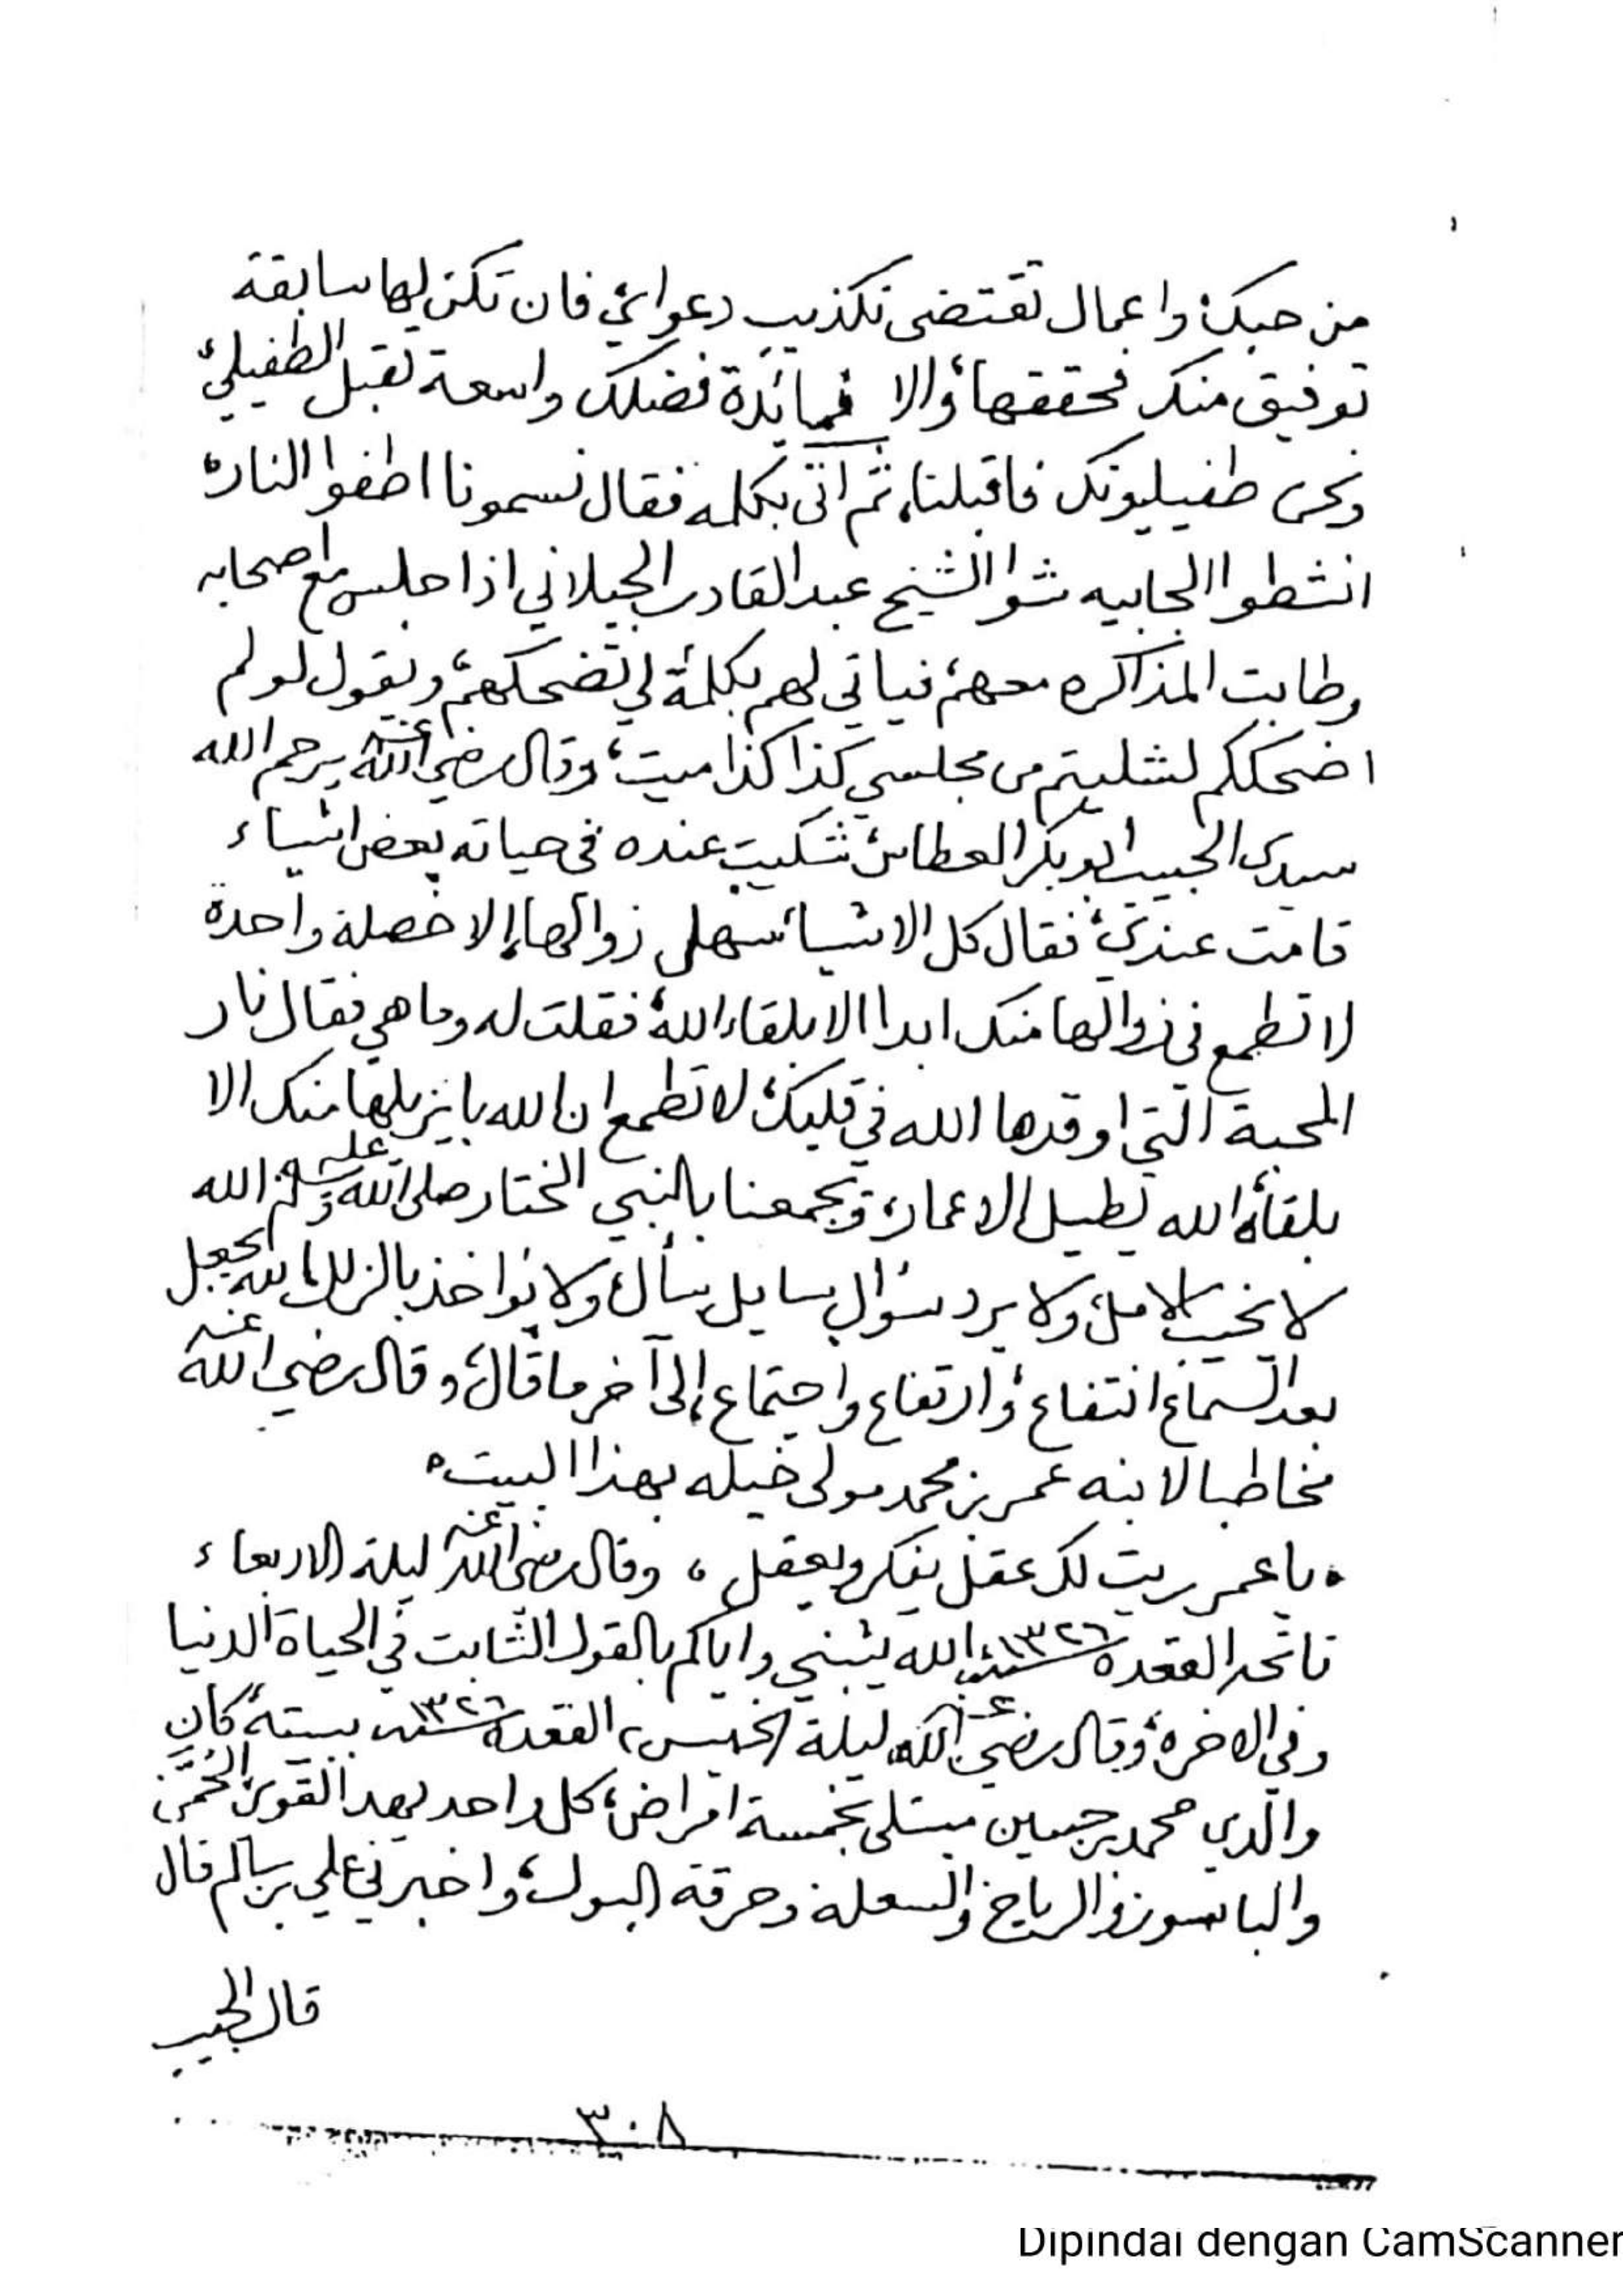 من حبك، واعمال تقتضى تكذيب دعوائي فان تكن لها سابقة
توفيق منك فحققها، والا فمائدة فضلك واسعة تقبل الطفيلي،
ونحن طفيليونك فاقبلنا، ثم اتى بكلمه فقال نسمونا اطفوا النار،
انشطوا الجابيه شوا الشيخ عبد القادر الجيلاني اذا جلس مع اصحابه
وطابت المذاكره معهم، فياتي لهم بكلمة لي تضحكهم، ويقول لو لم
اضحككم لشليتم من مجلسي كذا كذا ميت، وقال رضي الله عنه يرحم الله
سيدى الحبيب ابو بكر العطاس، شكيت عنده في حياته بعض اشياء
قامت عندي، فقال كل الاشياء سهل زوالها إلا خصلة واحدة
لا تطمع في زوالها منك ابدا الا بلقاء الله، فقلت له وما هي فقال نار
المحبة التي اوقدها الله في قلبك، لا تطمع ان الله با يزيلها منك الا
بلقاء الله الله يطيل الاعمار، ويجمعنا بالنبي المختار صلى الله عليه وسلم، الله
لا يخيب الامل، ولا يرد سؤال سايل سأل، ولا يؤاخذ بالزلل، الله يجعل
بعد السماع انتفاع، وارتفاع واجتماع إلى آخر ما قال، وقال رضي الله عنه
مخاطبا لابنه عمر بن محمد مولى خيله بهذا البيت ه
ه يا عمر ريت لك عقل يفكر ويعقل ، وقال رضى الله عنه ليلة الاربعاء
فاتحة القعده سنة ١٣٢٦، الله يثبتني واياكم بالقول الثابت في الحياة الدنيا
وفي الاخرة، وقال رضي الله عنه ليلة الخميس ٢ القعدة سنة ١٣٢٦ ببيته، كان
والدي محمد بن حسين مبتلى بخمسة امراض، كل واحد يهد القوى، الحمى
والباسور والرياح والسعلة وحرقة البول، واخبرني علي بن سالم قال
قال الحبيب
٣٠٨
Dipindai dengan CamScanner